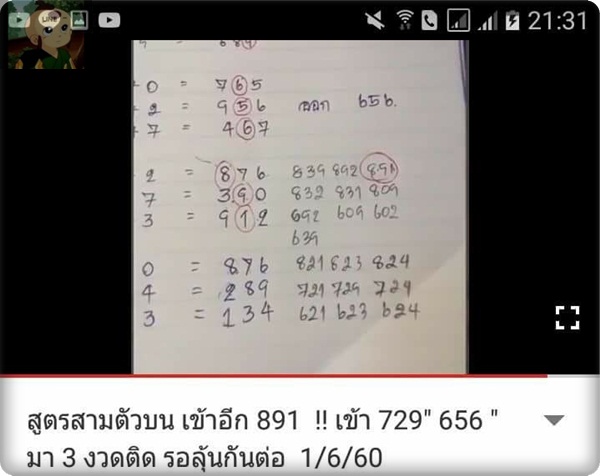 LINE
21:31
0 = 765
2 = 956 ออก 656.
7 = 467
2 = 876 839 892 891
7 = 390 832 831 809
3 = 912 692 609 602
639
0 = 876 821 823 824
4 = 289 721 729 724
3 = 134 621 623 624
สูตรสามตัวบน เข้าอีก 891 !! เข้า 729" 656 "
มา 3 งวดติด รอลุ้นกันต่อ 1/6/60